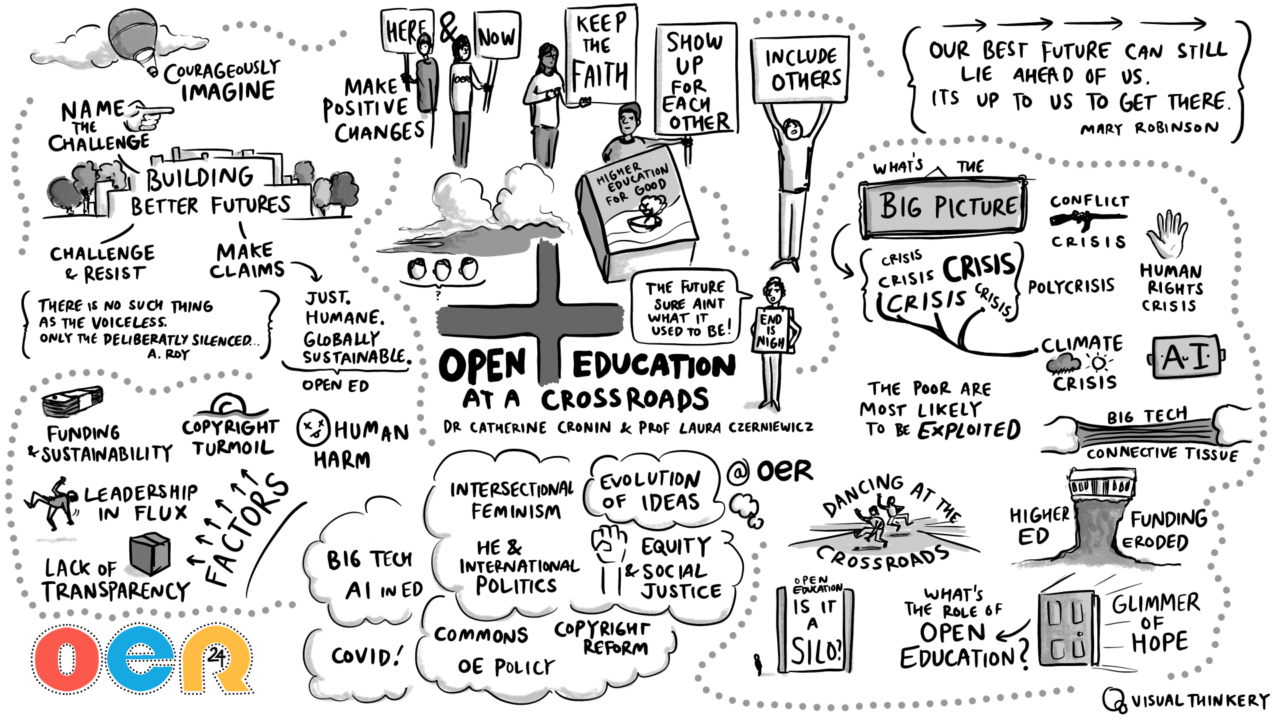 COURAGEOUSLY
IMAGINE
NAME
THE
CHALLENGE
BUILDING
BETTER FUTURES
CHALLENGE
& RESIST
MAKE
CLAIMS
THERE IS NO SUCH THING
AS THE VOICELESS.
ONLY THE DELIBERATLY SILENCED...
A. ROY
JUST.
HUMANE.
GLOBALLY
SUSTAINABLE.
OPEN ED
FUNDING
& SUSTAINABILITY
COPYRIGHT
TURMOIL
HUMAN
HARM
LEADERSHIP
IN FLUX
LACK OF
TRANSPARENCY
FACTORS
OER
24
HERE & NOW
MAKE
POSITIVE
CHANGES
OER
KEEP
THE
FAITH
SHOW
UP
FOR
EACH
OTHER
INCLUDE
OTHERS
HIGHER
EDUCATION
FOR GOOD
?
THE FUTURE
SURE AINT
WHAT IT
USED TO BE!
END
IS
NIGH
OPEN EDUCATION
AT A CROSSROADS
DR CATHERINE CRONIN & PROF LAURA CZERNIEWICZ
INTERSECTIONAL
FEMINISM
EVOLUTION
OF IDEAS
@ OER
BIG TECH
AI IN ED
HE &
INTERNATIONAL
POLITICS
EQUITY
& SOCIAL
JUSTICE
COVID!
COMMONS
OE POLICY
COPYRIGHT
REFORM
OUR BEST FUTURE CAN STILL
LIE AHEAD OF US.
ITS UP TO US TO GET THERE.
MARY ROBINSON
WHAT'S THE
BIG PICTURE
CRISIS
CRISIS
CRISIS
CRISIS
CRISIS
POLYCRISIS
CONFLICT
CRISIS
HUMAN
RIGHTS
CRISIS
CLIMATE
CRISIS
AI
THE POOR ARE
MOST LIKELY
TO BE EXPLOITED
BIG TECH
CONNECTIVE TISSUE
DANCING AT THE
CROSSROADS
HIGHER
ED
FUNDING
ERODED
OPEN
EDUCATION
IS IT
A
SILO?
WHAT'S
THE ROLE OF
OPEN
EDUCATION?
GLIMMER
OF
HOPE
VISUAL THINKERY